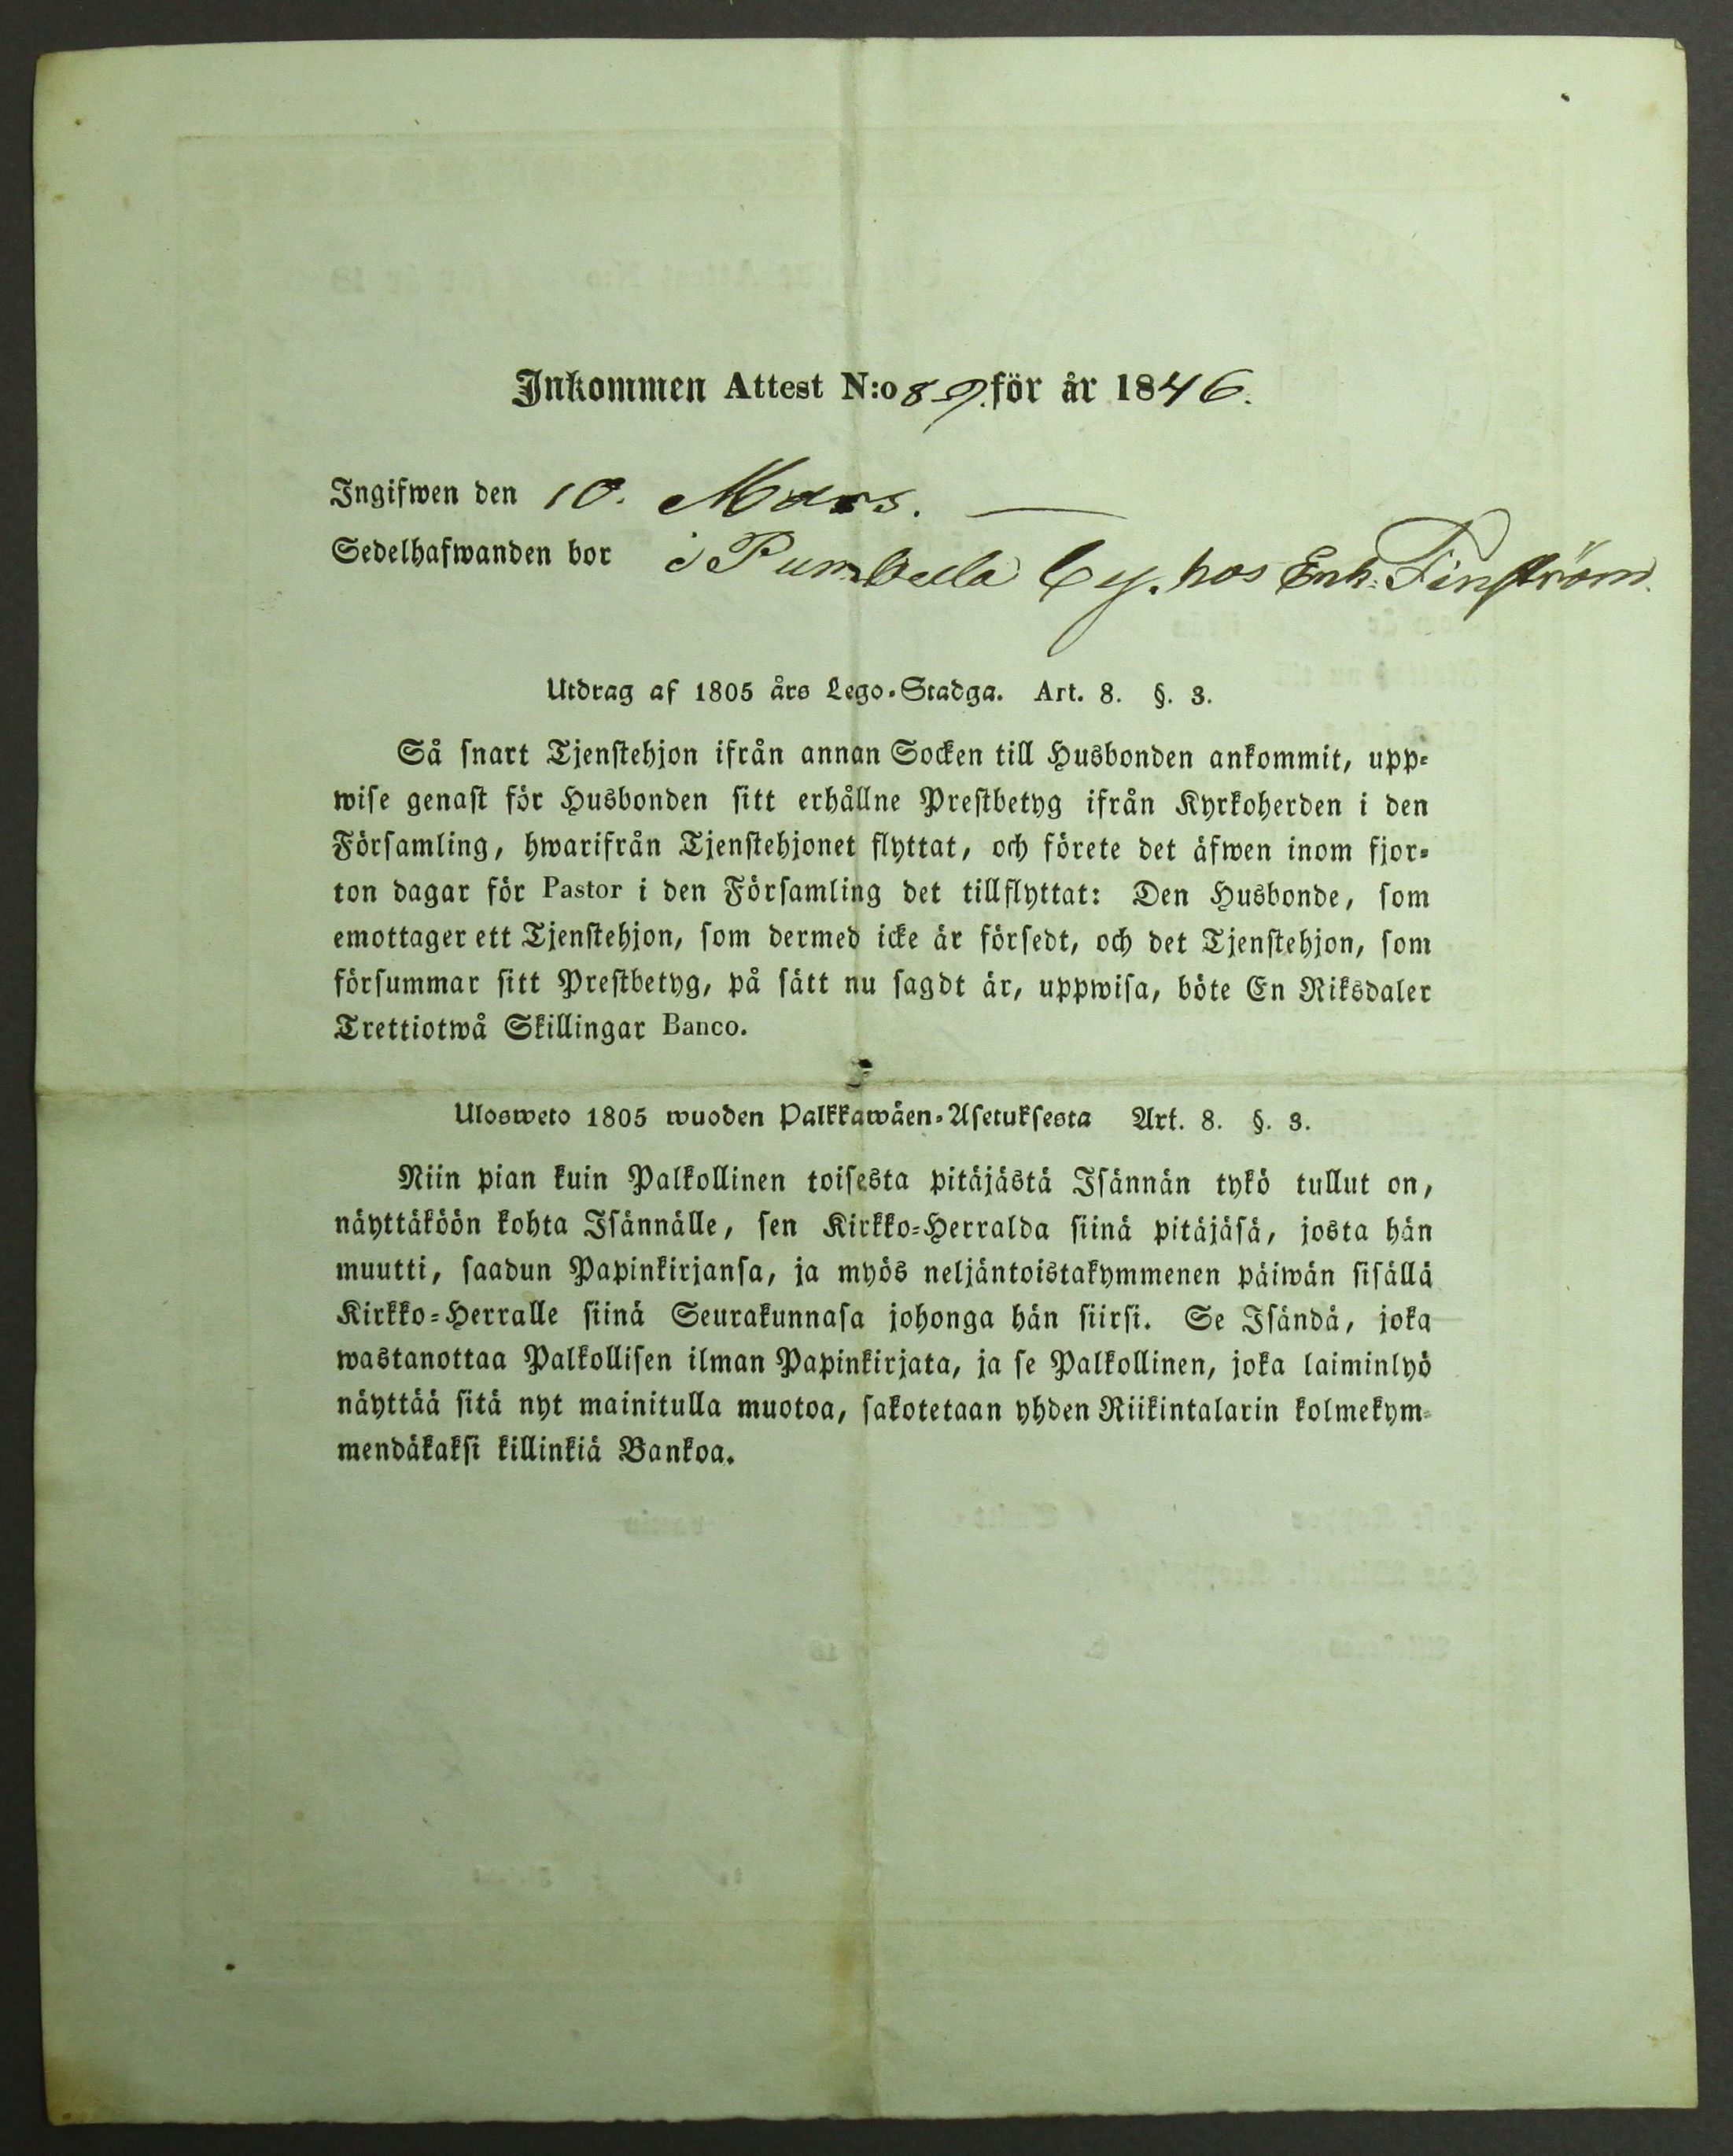 Inkommen Attest N:o 89. för år 1846.
Ingifwen den 10. Mars. —
Sedelhafwanden bor i Pumbula by. hos Enk. Finström.
Utdrag af 1805 års Lego-Stadga. Art. 8. §. 3.
Så snart Tjenstehjon ifrån annan Socken till Husbonden ankommit, upp-
wise genast för Husbonden sitt erhållne Prestbetyg ifrån Kyrkoherden i den
Församling, hwarifrån Tjenstehjonet flyttat, och förete det äfwen inom fjor-
ton dagar för Pastor i den Församling det tillflyttat: Den Husbonde, som
emottager ett Tjenstehjon, som dermed icke är försedt, och det Tjenstehjon, som
försummar sitt Prestbetyg, på sätt nu sagdt är, uppwisa, böte En Riksdaler
Trettiotwå Skillingar Banco.
Ulosweto 1805 wuoden Palkkawäen-Asetuksesta Art. 8. §. 3.
Niin pian kuin Palkollinen toisesta pitäjästä Isännän tykö tullut on,
näyttäköön kohta Isännälle, sen Kirkko-Herralda siinä pitäjäsä, josta hän
muutti, saadun Papinkirjansa, ja myös neljäntoistakymmenen päiwän sisällä
Kirkko-Herralle siinä Seurakunnasa johonga hän siirsi. Se Isändä, joka
wastanottaa Palkollisen ilman Papinkirjata, ja se Palkollinen, joka laiminlyö
näyttää sitä nyt mainitulla muotoa, sakotetaan yhden Riikintalarin kolmekym-
mendäkaksi killinkiä Bankoa.